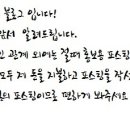 블로그 입니다!
앞서 알려드립니다.
인 관계 외에는 절때 홍보용 포스팅
모두 제 돈을 지불하고 포스팅을 작성
의 포스팅이므로 편하게 봐주세요